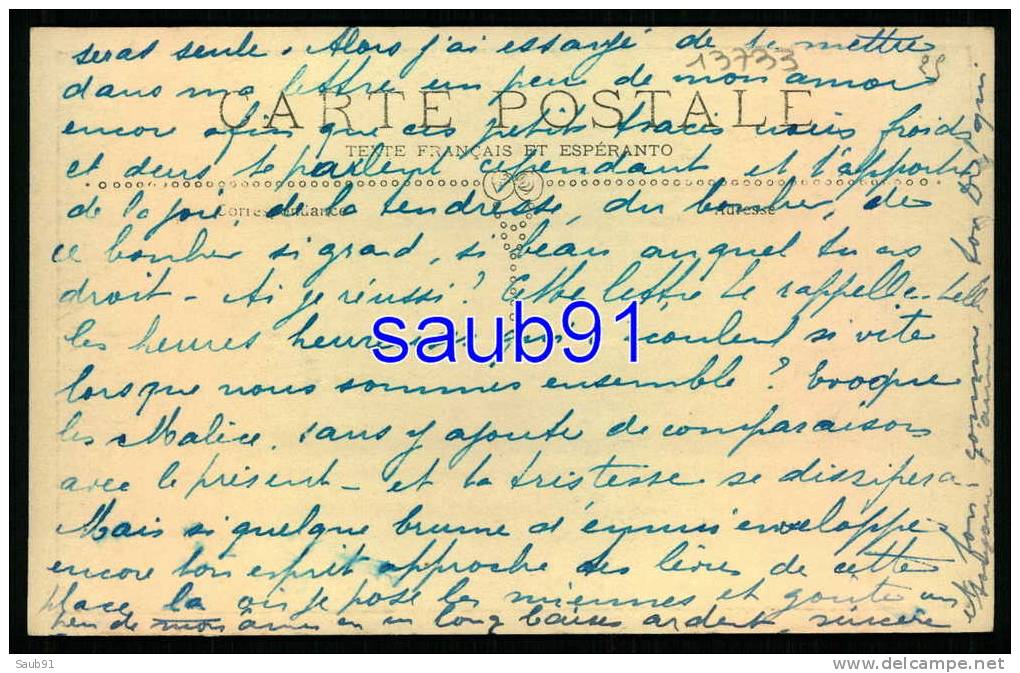 seras seule. Alors j'ai essayé de te mettre
13733
25
dans ma lettre un peu de mon amour
CARTE POSTALE
encor afin que ces petits traces noirs froids
TEXTE FRANÇAIS ET ESPÉRANTO
et deus te parlent cependant et t'apporte
Correspondance
Adresse
de la joie, de la tendresse, du bonheur, de
ce bonheur si grand, si beau auquel tu as
droit - Ai je réussi? Cette lettre te rappelle-t-elle
les heures heureuses qui s'écoulent si vite
saub91
lorsque nous sommes ensemble? Evoque
les Malice, sans y ajouter de comparaison
avec le présent - et ta tristesse se dissipera -
Mais si quelque brume d'ennui enveloppe
encore ton esprit approche tes lèvres de cette
place là où je pose les miennes et goûte un
peu de mon âme en un long baiser ardent, sincère
et bon comme ton
Saub91
http://www.delcampe.net